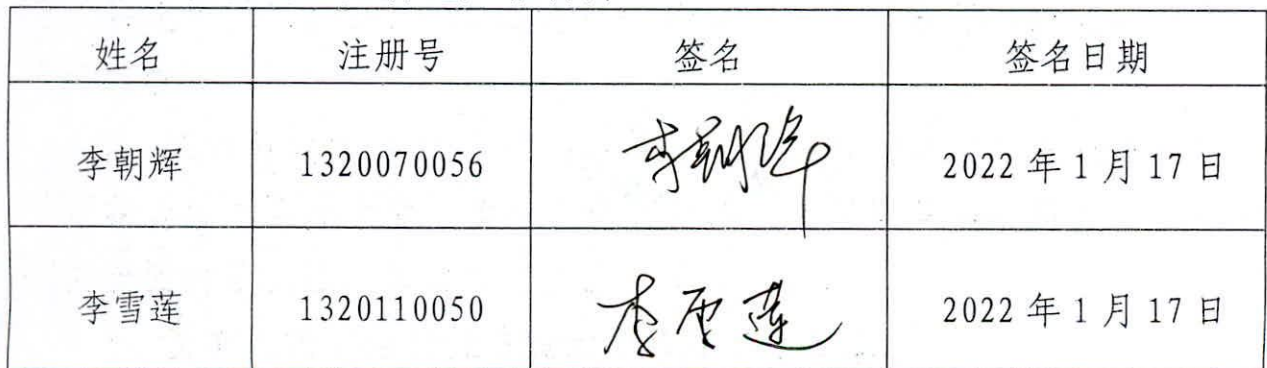 姓名 注册号 签名 签名日期
李朝辉 1320070056 李朝辉 2022年1月17日
李雪莲 1320110050 李雪莲 2022年1月17日